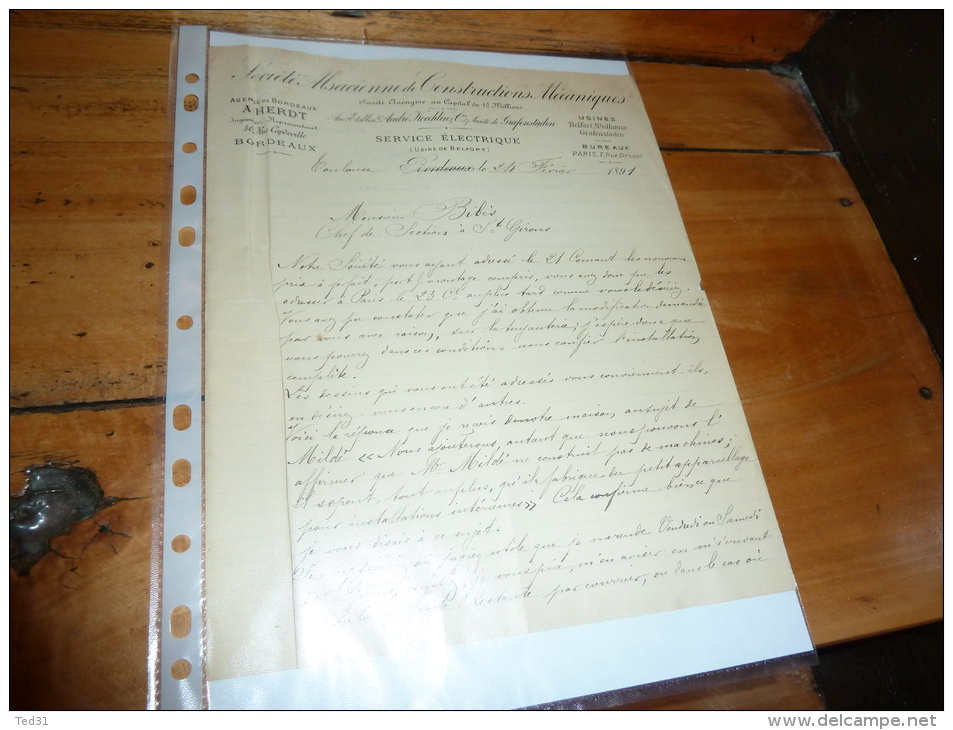 Société Alsacienne de Constructions Mécaniques
Société Anonyme au Capital de 12 Millions
Anc.ts Etablits. André Kœchlin & Cie & Société de Grafenstaden
SERVICE ÉLECTRIQUE
(USINE DE BELFORT)
AGENCE DE BORDEAUX
A. HERDT
Ingénieur Représentant
40 Rue Capdeville
BORDEAUX
USINES
Belfort, Mulhouse
Grafenstaden
BUREAUX
PARIS, 7, Rue Drouot
Toulouse Bordeaux, le 24 Février 1891
Monsieur Bibis
Chef de Section à St Girons
Notre Société vous ayant adressé le 21 Courant les nouveaux
prix à forfait, port & montage compris, vous avez donc pu les
adresser à Paris le 23 Ct au plus tard comme vous le désiriez.
Vous avez pu constater que j'ai obtenu la modification demandée
par vous avec raison, sur la tuyauterie; j'espère donc que
vous pourrez dans ces conditions nous confier l'installation
complète.
Les dessins qui vous ont été adressés vous conviennent-ils,
en désirez-vous encore d'autres.
Voici la réponse que je reçois de notre maison, au sujet de
Mildé « Nous ajouterons, autant que nous pouvons l'
affirmer que Mr Mildé ne construit pas de machines;
et peut, tout au plus, qu'il fabrique du petit appareillage
pour installations intérieures » Cela confirme bien ce que
je vous disais à ce sujet.
ou jugiez utile que je me rende Vendredi ou Samedi
je vous prie, m'en aviser en m'écrivant
restante par courrier, ou dans le cas où
Ted31
www.delcampe.net